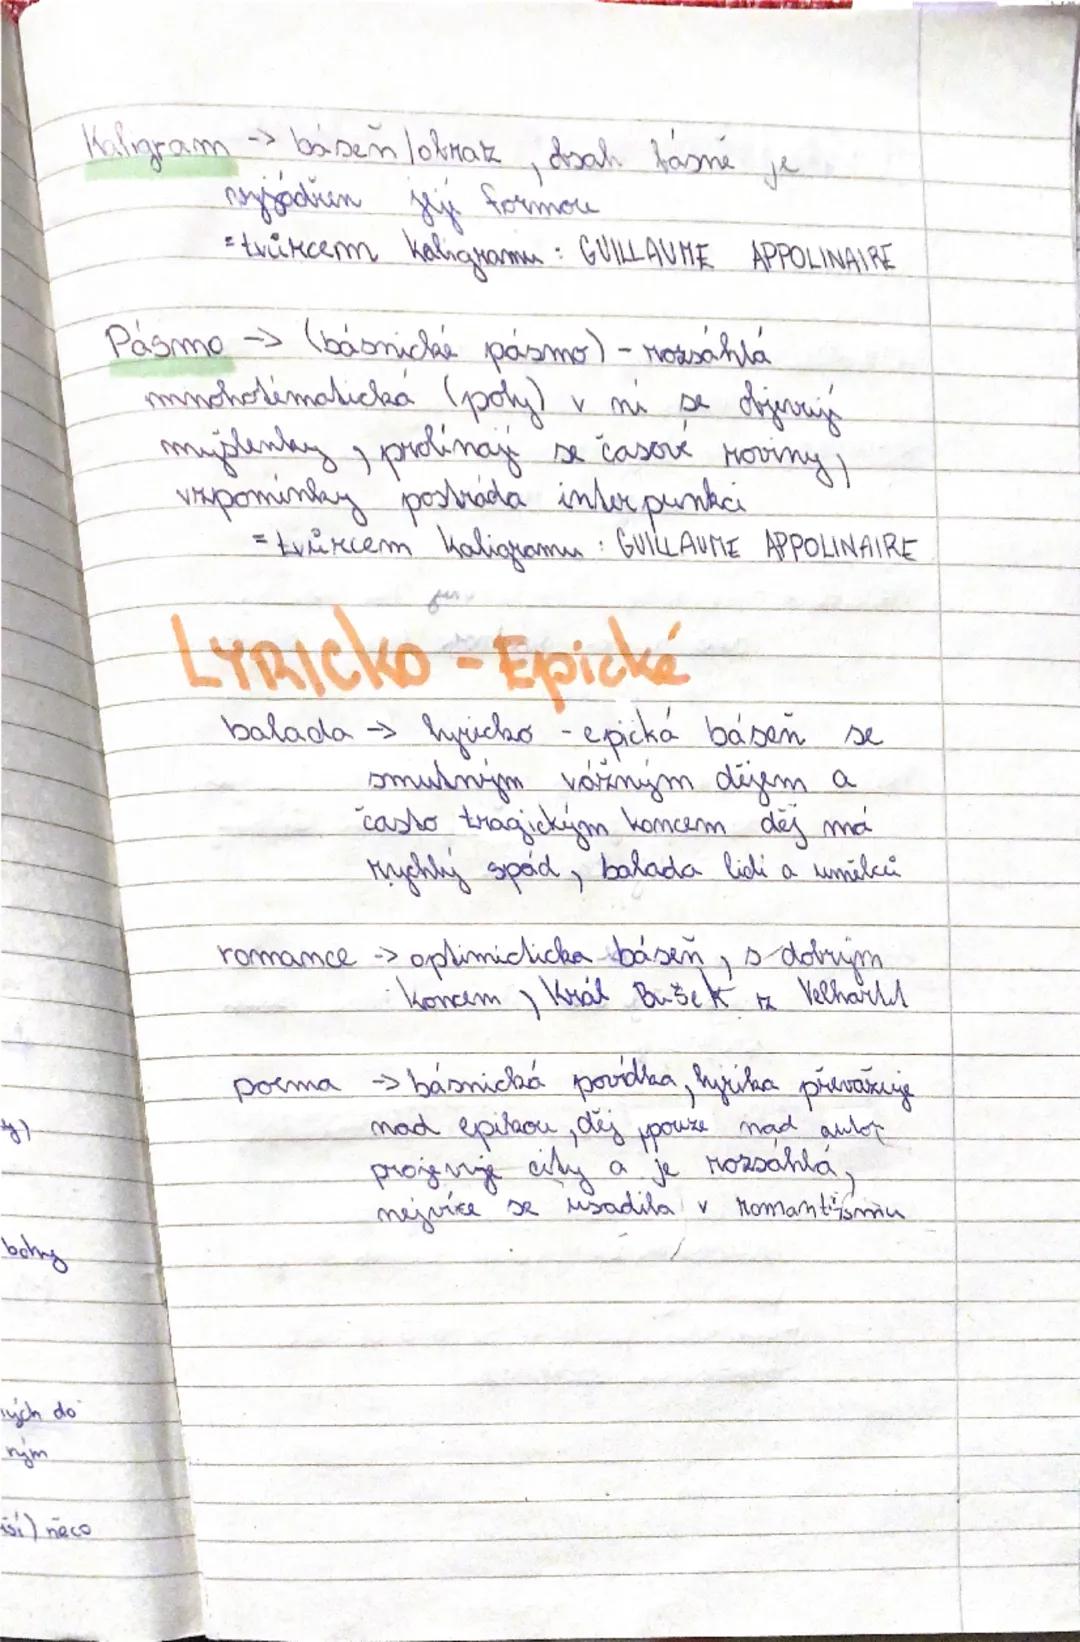 Kaligram -> báseň/obraz, obsah básně je
vyjádřen její formou
= tvůrcem kaligramu: GUILLAUME APPOLINAIRE
Pásmo -> (básnické pásmo) - rozsáhlá
mnohotématická (poly) v ní se objevují
myšlenky, prolínají se časové roviny,
vzpomínky postráda interpunkci
= tvůrcem kaligramu: GUILLAUME APPOLINAIRE
LYRICKO - Epické
balada -> lyricko - epická báseň se
smutným vážným dějem a
často tragickým koncem děj má
rychlý spád, balada lidi a umělců
romance -> optimictická báseň, s dobrým
koncem, Král Bušek z Velhartit
poema -> básnická povídka, lyrika převažuje
nad epikou, děj pouze nad autor
projevuje city a je rozsáhlá,
nejvíce se usadila v romantismu
y)
bohy
ných do
ným
iší) něco